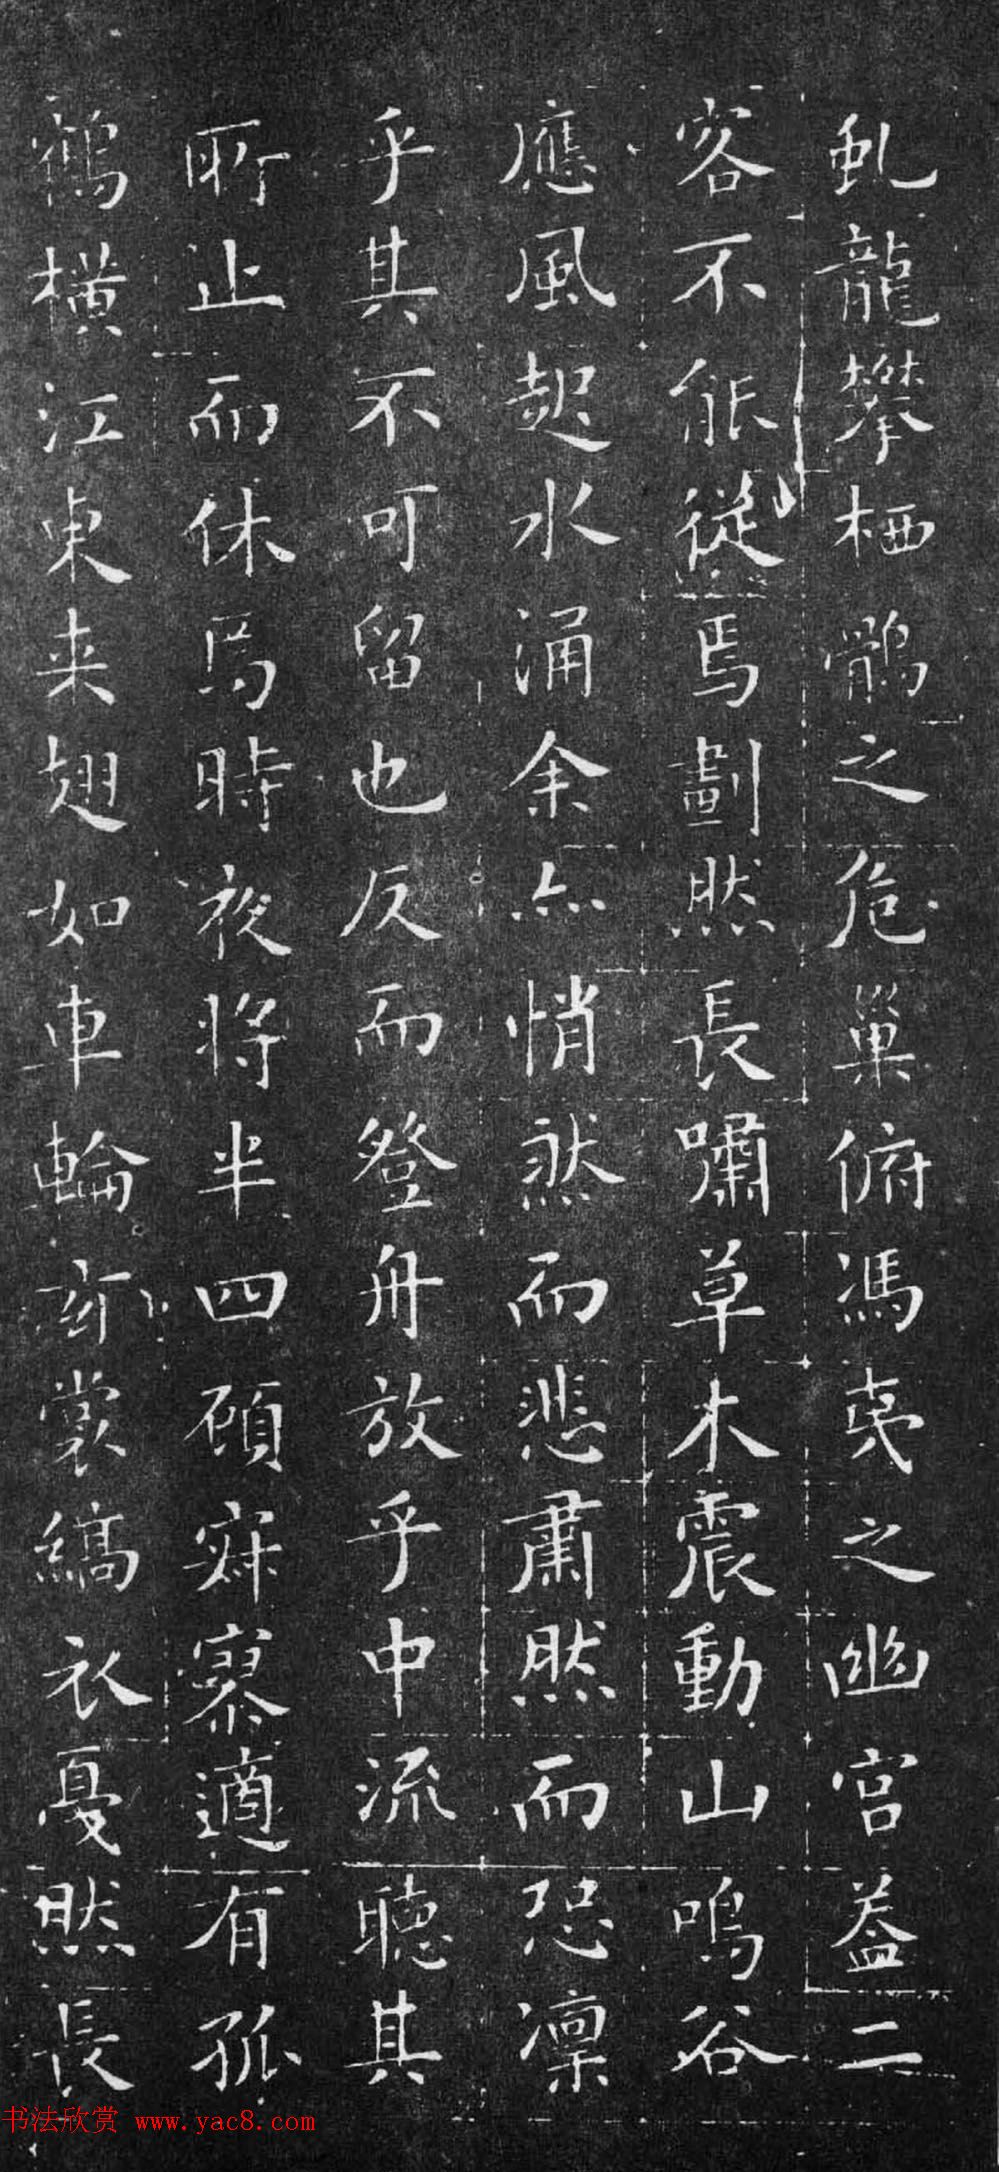 虬龍攀栖鶻之危巢俯馮夷之幽宮葢二
客不能從焉劃然長嘯草木震動山鳴谷
應風起水涌余亦悄然而悲肅然而恐凜
乎其不可留也反而登舟放乎中流聽其
所止而休焉時夜將半四顧寂寥適有孤
鶴橫江東来翅如車輪玄裳縞衣戛然長
书法欣赏 www.yac8.com